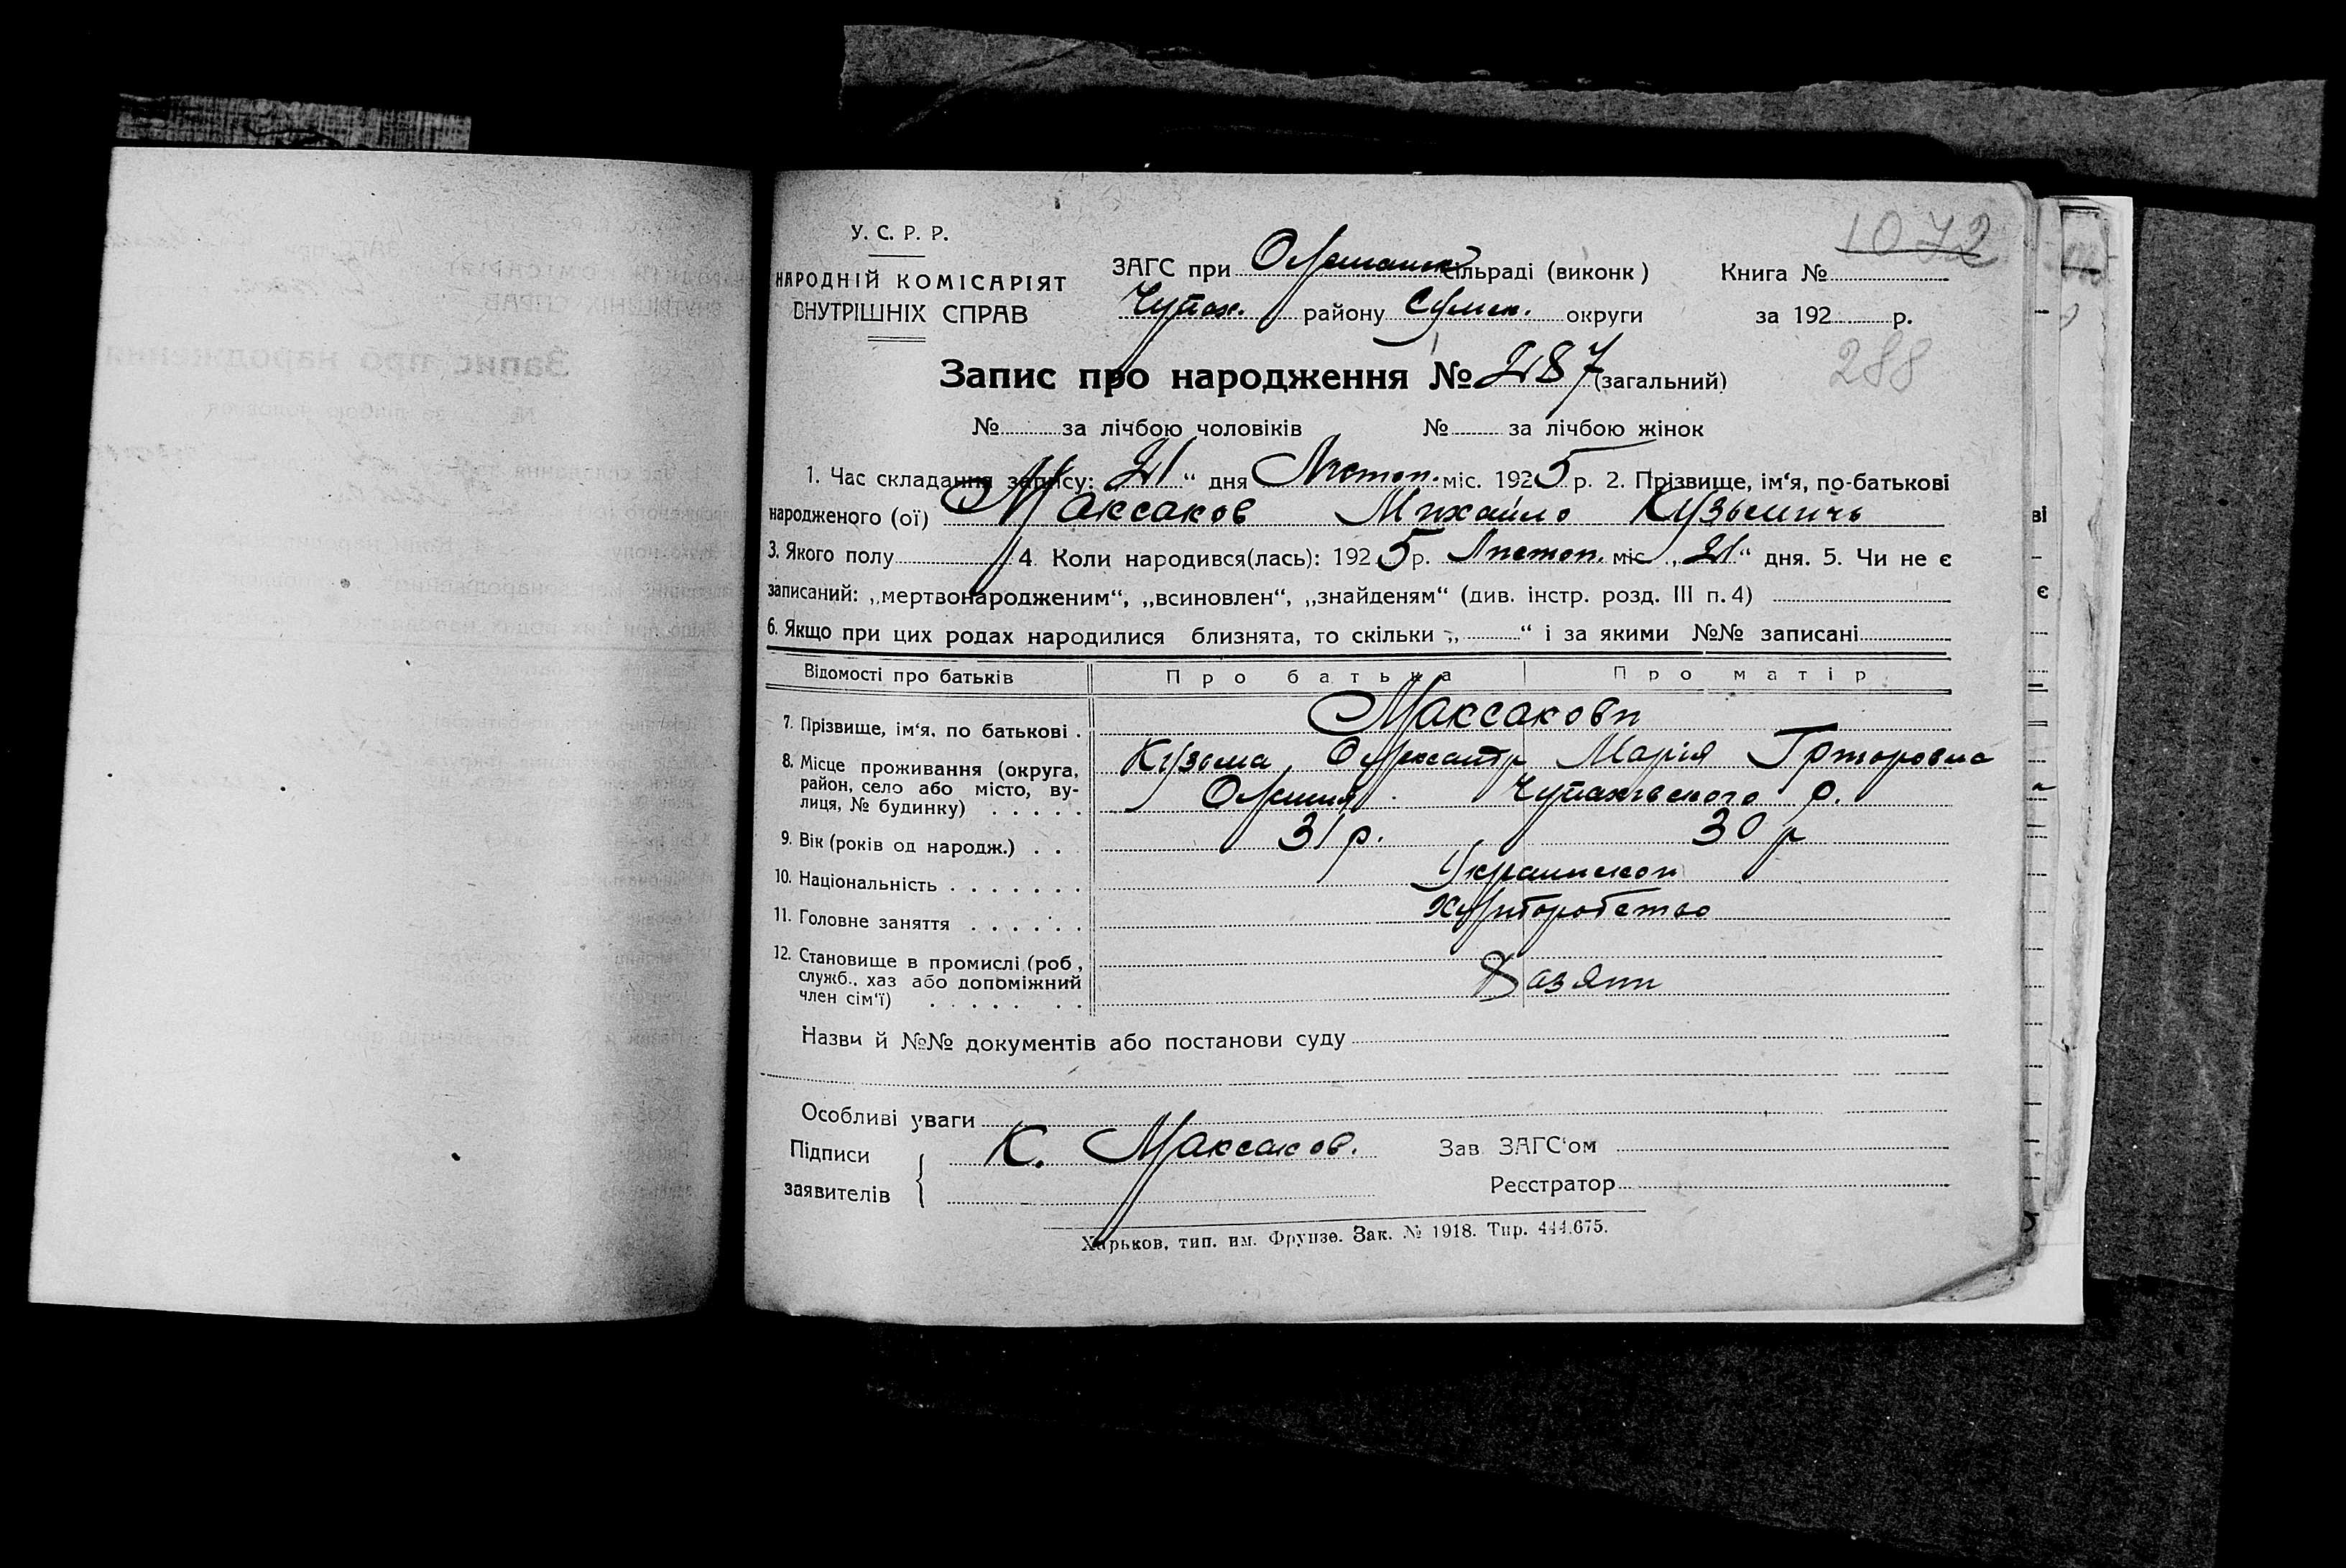 1072
У. С. Р. Р.
НАРОДНІЙ КОМІСАРІЯТ
ВНУТРІШНІХ СПРАВ
ЗАГС при Олешанск сільраді (виконк) Книга №
Чупах. району Сумск. округи за 192 р.
Запис про народження № 287 (загальний) 288
№ за лічбою чоловіків № за лічбою жінок
1. Час складання запису: 21“ дня Листоп. міс. 1925 р. 2. Прізвище, ім‘я, по-батькові
народженого (ої) Максаков Михайло Кузьмичь
3. Якого полу 4. Коли народився(лась): 1925 р. Листоп. міс „21“ дня. 5. Чи не є
записаний: „мертвонародженим“, „всиновлен“, „знайденям“ (див. інстр. розд. III п. 4)
6. Якщо при цих родах народилися близнята, то скільки „ “ і за якими №№ записані
Відомості про батьків Про батька Про матір
7. Прізвище, ім‘я, по батькові . Максакови
Кузьма Олександр Марія Григоровна
8. Місце проживання (округа,
район, село або місто, ву-
лиця, № будинку) . . . . . Олешня Чупахівського р.
9. Вік (років од народж.) . . 31 р. 30 р
10. Національність . . . . . . . Украинскоп
11. Головне заняття . . . . . . Хліборобство
12. Становище в промислі (роб,
служб., хаз або допоміжний
член сім‘ї) . . . . . . . .
Назви й №№ документів або постанови суду
Особливі уваги
Підписи К. Максаков. Зав. ЗАГС‘ом
заявителів Реєстратор
Харьков, тип. им. Фрунзе. Зак. № 1918. Тир. 444.675.